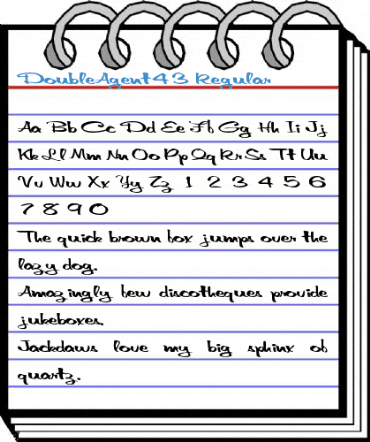 DoubleAgent43 Regular
Aa Bb Cc Dd Ee Ff Gg Hh Ii Jj
Kk Ll Mm Nn Oo Pp Qq Rr Ss Tt Uu
Vv Ww Xx Yy Zz 1 2 3 4 5 6
7 8 9 0
The quick brown fox jumps over the
lazy dog.
Amazingly few discotheques provide
jukeboxes.
Jackdaws love my big sphinx of
quartz.